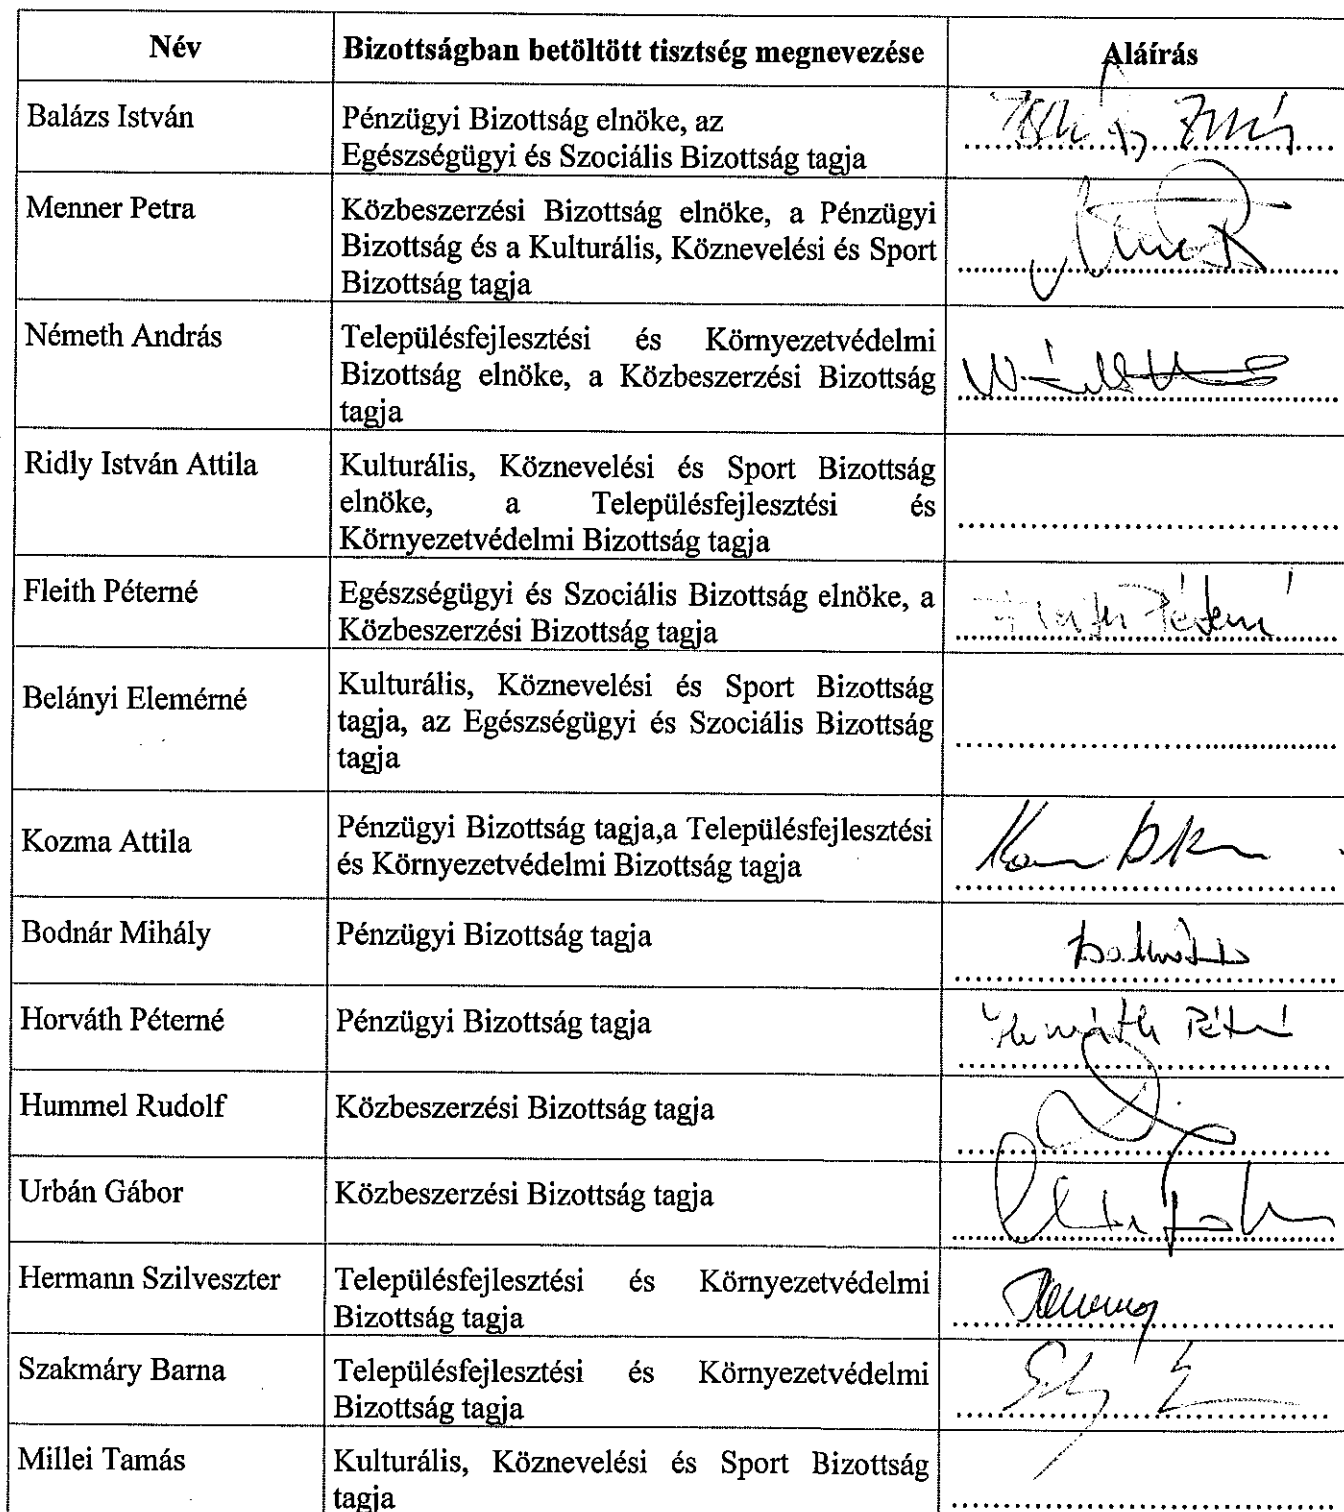 Név Bizottságban betöltött tisztség megnevezése Aláírás
Balázs István
Pénzügyi Bizottság elnöke, az
Egészségügyi és Szociális Bizottság tagja
Menner Petra
Közbeszerzési Bizottság elnöke, a Pénzügyi
Bizottság és a Kulturális, Köznevelési és Sport
Bizottság tagja
Németh András
Településfejlesztési és Környezetvédelmi
Bizottság elnöke, a Közbeszerzési Bizottság
tagja
Ridly István Attila
Kulturális, Köznevelési és Sport Bizottság
elnöke, a Településfejlesztési és
Környezetvédelmi Bizottság tagja
Fleith Péterné
Egészségügyi és Szociális Bizottság elnöke, a
Közbeszerzési Bizottság tagja
Belányi Elemérné
Kulturális, Köznevelési és Sport Bizottság
tagja, az Egészségügyi és Szociális Bizottság
tagja
Kozma Attila
Pénzügyi Bizottság tagja,a Településfejlesztési
és Környezetvédelmi Bizottság tagja
Bodnár Mihály
Pénzügyi Bizottság tagja
Horváth Péterné
Pénzügyi Bizottság tagja
Hummel Rudolf
Közbeszerzési Bizottság tagja
Urbán Gábor
Közbeszerzési Bizottság tagja
Hermann Szilveszter
Településfejlesztési és Környezetvédelmi
Bizottság tagja
Szakmáry Barna
Településfejlesztési és Környezetvédelmi
Bizottság tagja
Millei Tamás
Kulturális, Köznevelési és Sport Bizottság
tagja